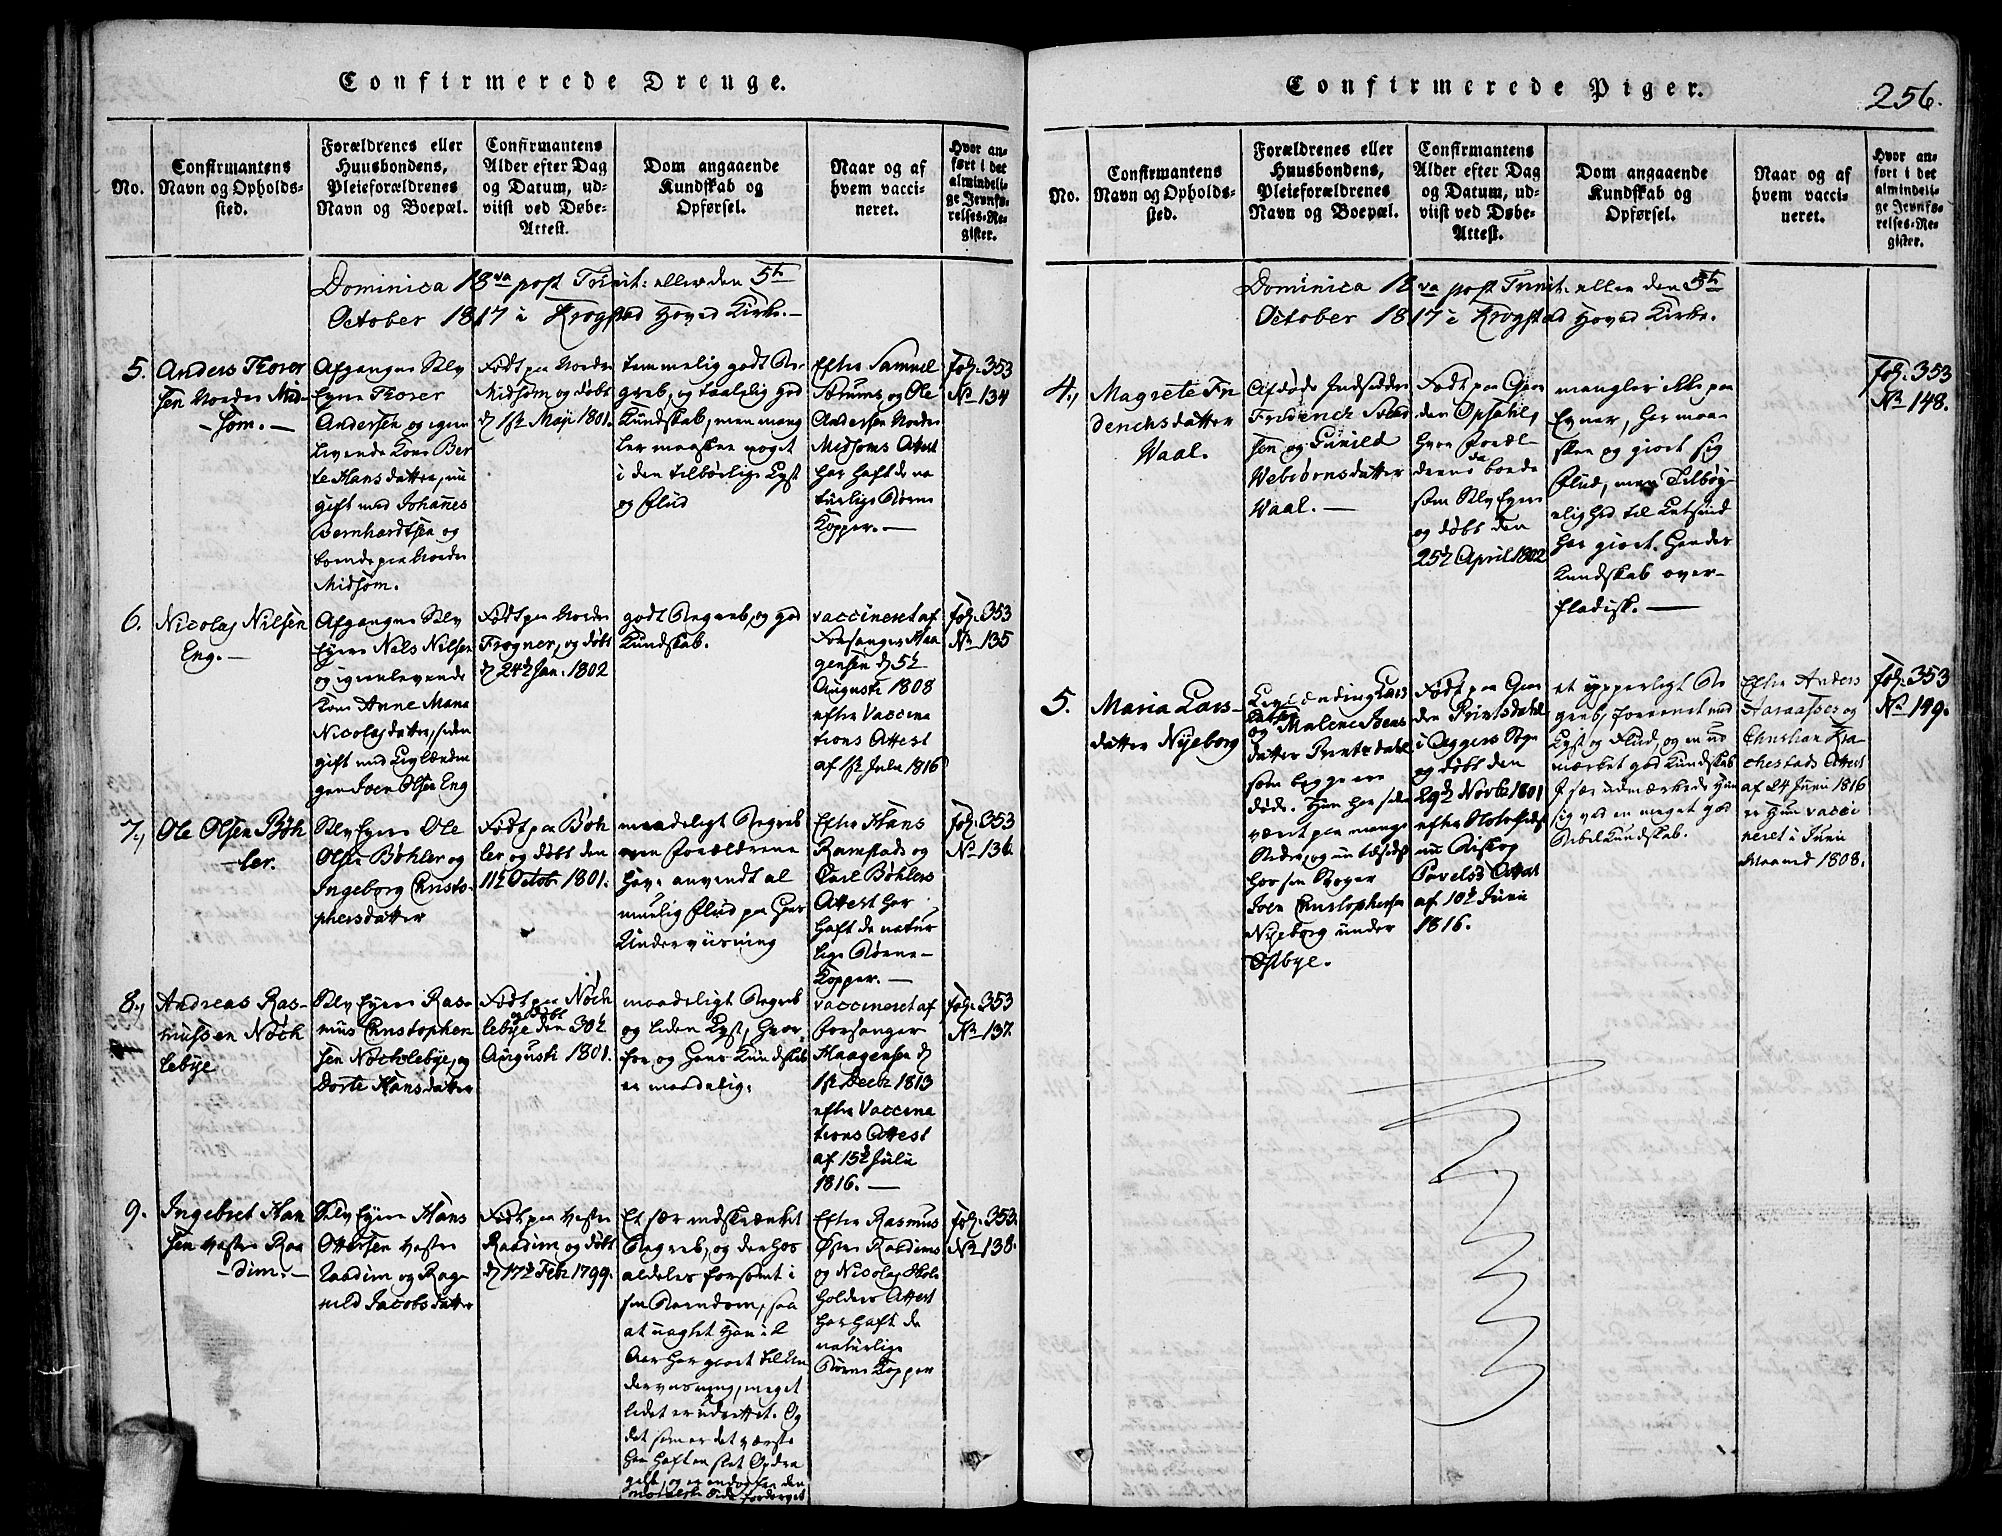 Confirmerede Drenge.
No.
Confirmantens
Navn og Opholds-
sted.
Forældrenes eller
Huusbondens,
Pleieforældrenes
Navn og Boepæl.
Confirmantens
Alder efter Dag
og Datum, ud-
viist ved Døbe-
Attest.
Dom angaaende
Kundskab og
Opførsel.
Naar og af
hvem vacci-
neret.
Hvor an-
ført i det
almindeli-
ge Jevnfø-
relses-Re-
gister.
Dominica 18va post Trinit: eller den 5te
October 1817 i Krogstad Hoved Kirke.
5.
Anders Thorer
sen Nordre Mid-
som.
Afgangne Selv
Eyer Thorer
Andersen og igien
levende Kone Ber
te Hansdatter, nu
gift med Johanes
Bernhardtsen og
boende paa Nordre
Midsom.
Født paa Nordre
Midsom og døbt
d 1ste Maji 1801.
temmelig godt Be-
greb, og taalelig god
Kundskab, men mang
ler maaskee noget
i den tilbørlige Lyst
og Flid
Efter Samuel
Sørums og Ole
Andersen Nordre
Midsoms Attest
har haft de na
turlige Børne
Kopper.
fol. 353
No 134
6.
Nicolaj Nilsen
Eng.
Afgangne Selv
Eyer Nels Nilsen
og igienlevende
Kone Anne Maria
Nicolajdatter, siden
gift med Leylænding
gen Joen Olsen Eng
Født paa Nordre
Frogner, og døbt
d 24de Jan. 1802
godt Begreb, og god
Kundskab.
vaccineret af
Forsanger Haa
gensen d 5te
Augusti 1808
efter Vaccina
tions Attest
af 1ste Julii 1816
fol. 353
No 135
7.
Ole Olsen Bøh
ler.
Selv Eyer Ole
Olsen Bøhler og
Ingeborg Christo-
phersdatter
Født paa Bøh
ler, og døbt den
11te Octob. 1801.
maadeligt Begreb
men Forældrene
have anvendt al
muelig Flid paa Hans
Underviisning
Efter Hans
Ramstads og
Carl Bøhlers
Attest har
haft de natur
lige Børne-
Kopper.
fol. 353
No 136.
8.
Andreas Ras-
mussen Nøch
lebye
Selv Eyer Ras-
mus Christopher
sen Nøchlebye, og
Dorte Hansdatter
Født paa Nøch
lebye og døbt den 30te
Augusti 1801.
maadeligt Begreb
og liden Lyst, hvor
for og Hans Kundskab
er maadelig.
vaccineret af
Forsanger
Haagensen d
1ste Decbr 1813
efter Vaccina
tions Attest
af 15de Julii
1816.
fol. 353
No 137.
9.
Ingebret Han
sen Vestre Raa
dim.
Selv Eyer Hans
Ottersen Vestre
Raadim og Rag-
nild Jacobsdatter
Født paa Vestre
Raadim og døbt
d 17de Febr 1799.
Et sær indskrænket
Begreb, og derhos
aldeles forsømt i
sin Barndom, saa
at uagtet Han i 2
Aar har gaaet til Un
dervisning, meget
lidet er udrettet. Og
det som er det værste
har haft en slet Opdra
gelse, og er endog fra den
moralske Side fordervet
Efter Rasmus
Østre Raadims
og Nicolaj
holders Attest
har haft de
naturlige
Børne Kopper
fol. 353.
No 138.
Confirmerede Piger.
256.
No.
Confirmantens
Navn og Opholds-
sted.
Forældrenes eller
Huusbondens,
Pleieforældrenes
Navn og Boepæl.
Confirmantens
Alder efter Dag
og Datum, ud-
viist ved Døbe-
Attest.
Dom angaaende
Kundskab og
Opførsel.
Naar og af
hvem vacci-
neret.
Hvor an-
ført i det
almindeli-
ge Jevnfø-
relses-Re-
gister.
Dominica 18va post Trinit: eller den 5te
October 1817 i Krogstad Hoved Kirke.
4.
Magrete Fri
derichsdatter
Vaal.
Afdøde Indsidder
Friderich
sen og Gunild
Vebiørnsdatter
Vaal.
Født paa Gaar
den Opsahl,
hvor Foræl
drene da boede
som Selv Eyere
og døbt den
25de April 1802
mangler ikke paa
Evner, har maa-
skee og giort sig
Flid, men Tilbøy-
elighed til Letsind
har giort Hendes
Kundskab over-
fladisk.
fol. 353
No 148.
5.
Maria Lars-
datter Nyeborg
Leylænding Lars
og Malene Joens
datter Printsdahl
som begge ere
døde. Hun har siden
været paa mange
Steder, og nu tilsidst
hos sin Svoger
Joen Christophersen
Nyeborg under
Østbye.
Født paa Gaar
den Printsdahl
i Aggers Sogn
og døbt den
29de Novbr 1801
efter
nu Biskop
Pavels's Attest
af 10de Junii
1816.
et ypperligt Be
greb, forenet med
Lyst og Flid, og en ud
mærket god Kundskab
I sær udmærkede Hun
sig ved en meget god
Bibelkundskab.
Efter Anders
Haraasses og
Christian Kra
chestads Attest
af 24 Junii 1816
er Hun vacci
neret i Junii
Maaned 1808.
fol. 353
No 149.